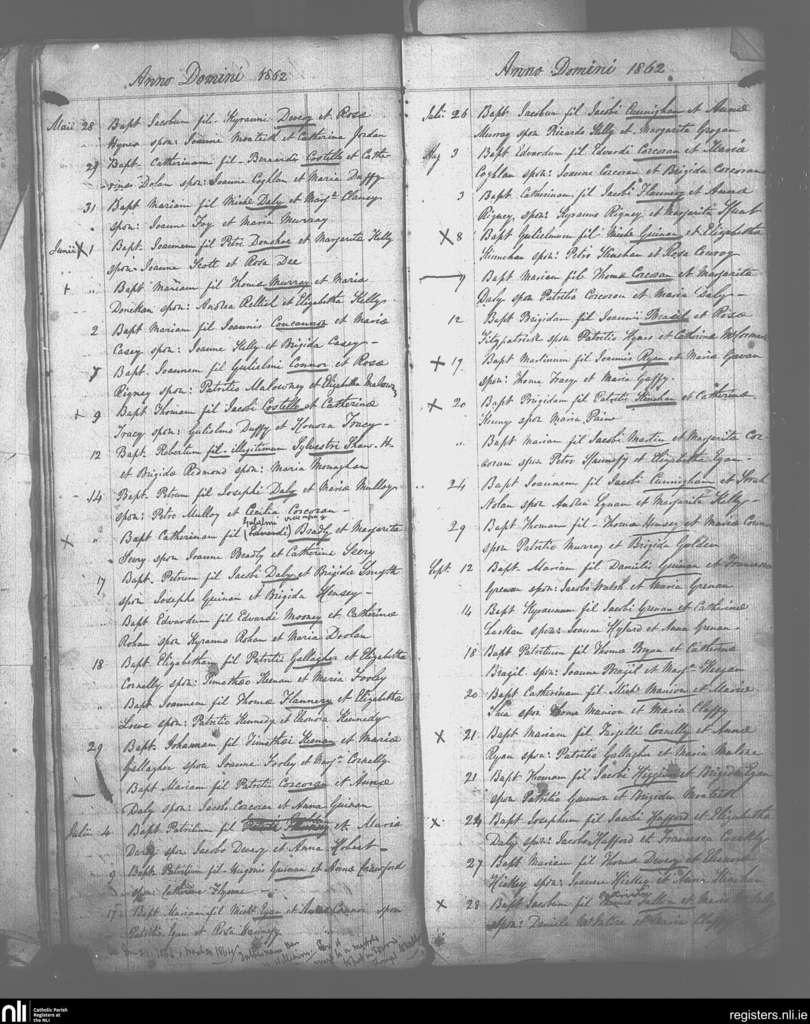 Anno Domini 1862
Maii 28 Bapt Jacobum fil. Kyranni Devery et Rosa
Hynes spon: Joanne et Catherina Jordan
29 Bapt. Catherinam fil. Bernardi Costello et Cathe
rina Dolan spon: Joanne Coghlan et Maria Duffy
31 Bapt Mariam fil Michl Daly et Margt Clancy
spon: Joanne Foy et Maria Murray
Junii X 1 Bapt. Joannem fil Petri Donohoe et Margarita Kelly
spon: Joanne Scott et Rosa Dee
+ " Bapt Mariam fil Thoma Murray et Maria
spon: Andrea et Elizabetha Kelly
2 Bapt Mariam fil Joannis Concannon et Maria
Casey spon: Joanne Kelly et Brigida Casey
Bapt. Joannem fil Gulielmi Connor et Rosa
Rigney spon: Patritio Malowney et Elizabetha
+ 9 Bapt Thomam fil Jacobi Costello et Catherina
Tracy spon: Gulielmo Duffy et Honora Tracy
12 Bapt. Robertum fil - illegitimum Sylvestri Shaw
et Brigida Redmond spon: Maria Monaghan
14 Bapt. Petrum fil Josephi Daly et Maria Mulloy
spon: Petro Mulloy et Cecilia Corcoran
X " Bapt Catherinam fil (Edwardi) Brady et Margarita
spon Joanne Brady et Catherina
17 Bapt. Petrum fil Jacobi Daly et Brigida Smyth
spon Josepho Guinan et Brigida Hensey
Bapt Edwardum fil Edwardi Mooney et Catherina
Rohan spon Kyranno Rohan et Maria Doolan
18 Bapt Elizabetham fil Patritii Gallagher et Elizabetha
Connelly spon: Timotheo Keenan et Maria Fooley
Bapt Joannem fil Thoma Flannery et Elizabetha
Lowe spon: Patritio Kennedy et Honora Kennedy
29 Bapt. Johannam fil Timothei Keenan et Maria
Gallagher spon Joanne Fooley et Margt Connelly
Bapt Mariam fil Patritii Corcoran et Anna
Daly spon: Jacobo Corcoran et Anna Guinan
Julii 4 Bapt Patritium fil et Maria
spon Jacobo Devery et Anna
9 Bapt. Patritium fil Hugonis Guinan et Anna Crawford
spon: Catherina Flynne
Bapt Mariam fil Michl Egan et Anna Connor spon
Patritio Egan et Rosa
Anno Domini 1862
Julii 26 Bapt Jacobum fil Jacobi Cunnigham et Anna
Murray spon Ricardo Kelly et Margarita Grogan
Aug 3 Bapt Edwardum fil Edwardi Corcoran et Maria
Coghlan spon: Joanne Corcoran et Brigida Corcoran
3 Bapt Catherinam fil Jacobi Flannery et Anna
Rigney, spon: Kyranno Rigney et Margarita
X 8 Bapt Gulielmum fil Michl Guinan et Elizabetha
Kinnehan spon: Petro Kinahan et Rosa Conroy
9 Bapt Mariam fil Thoma Corcoran et Margarita
Daly spon Patritio Corcoran et Maria Daly
12 Bapt Brigidam fil Joannis Brazil et Rosa
Fitzpatrick spon Patritio Hynes et Catherina McCormack
X 17 Bapt Martinum fil Joannis Ryan et Maria Gavan
spon: Thoma Tracy et Maria Gaffy.
X 20 Bapt Brigidam fil Patritii Kinahan et Catherina
Kenny spon Maria
" Bapt Mariam fil Jacobi Martin et Margarita Cor
coran spon Petro et Elizabetha Egan
24 Bapt Joannem fil Jacobi Cunnigham et Sarah
Nolan spon Andrea Lynam et Margarita Kelly
29 Bapt Thomam fil - Thoma Hensey et Maria
spon Patritio Murray et Brigida Golden
Sept. 12 Bapt. Mariam fil Danielis Guinan et Francesca
Grennan spon: Jacobo Walsh et Maria Grenan
14 Bapt Kyrannum fil Jacobi Grenan et Catherina
Larkan spon: Joanne Hyland et Anna Grenan
18 Bapt Patritium fil Thoma Bryan et Catherina
Brazil spon: Joanne Brazil et Margt
20 Bapt Catherinam fil Michl Manion et Maria
Shea spon Thoma Manion et Maria Claffy
X 21 Bapt Mariam fil Connelly et Anna
Ryan spon: Patritio Gallagher et Maria Malone
21 Bapt Thomam fil Jacobi Higgins et Brigida Egan
spon Patritio Gannon et Brigida
X 24 Bapt Josephum fil Jacobi Hafford et Elizabetha
Daly spon: Jacobo Hafford et Francesca
27 Bapt Mariam fil Thoma Devery et Eleanora
Hickey spon: Joanne Hickey et Anna
X 28 Bapt Jacobum fil Fallon et Maria
spon: Daniele et Maria Claffy
nli Catholic Parish
Registers at
the NLI
registers.nli.ie